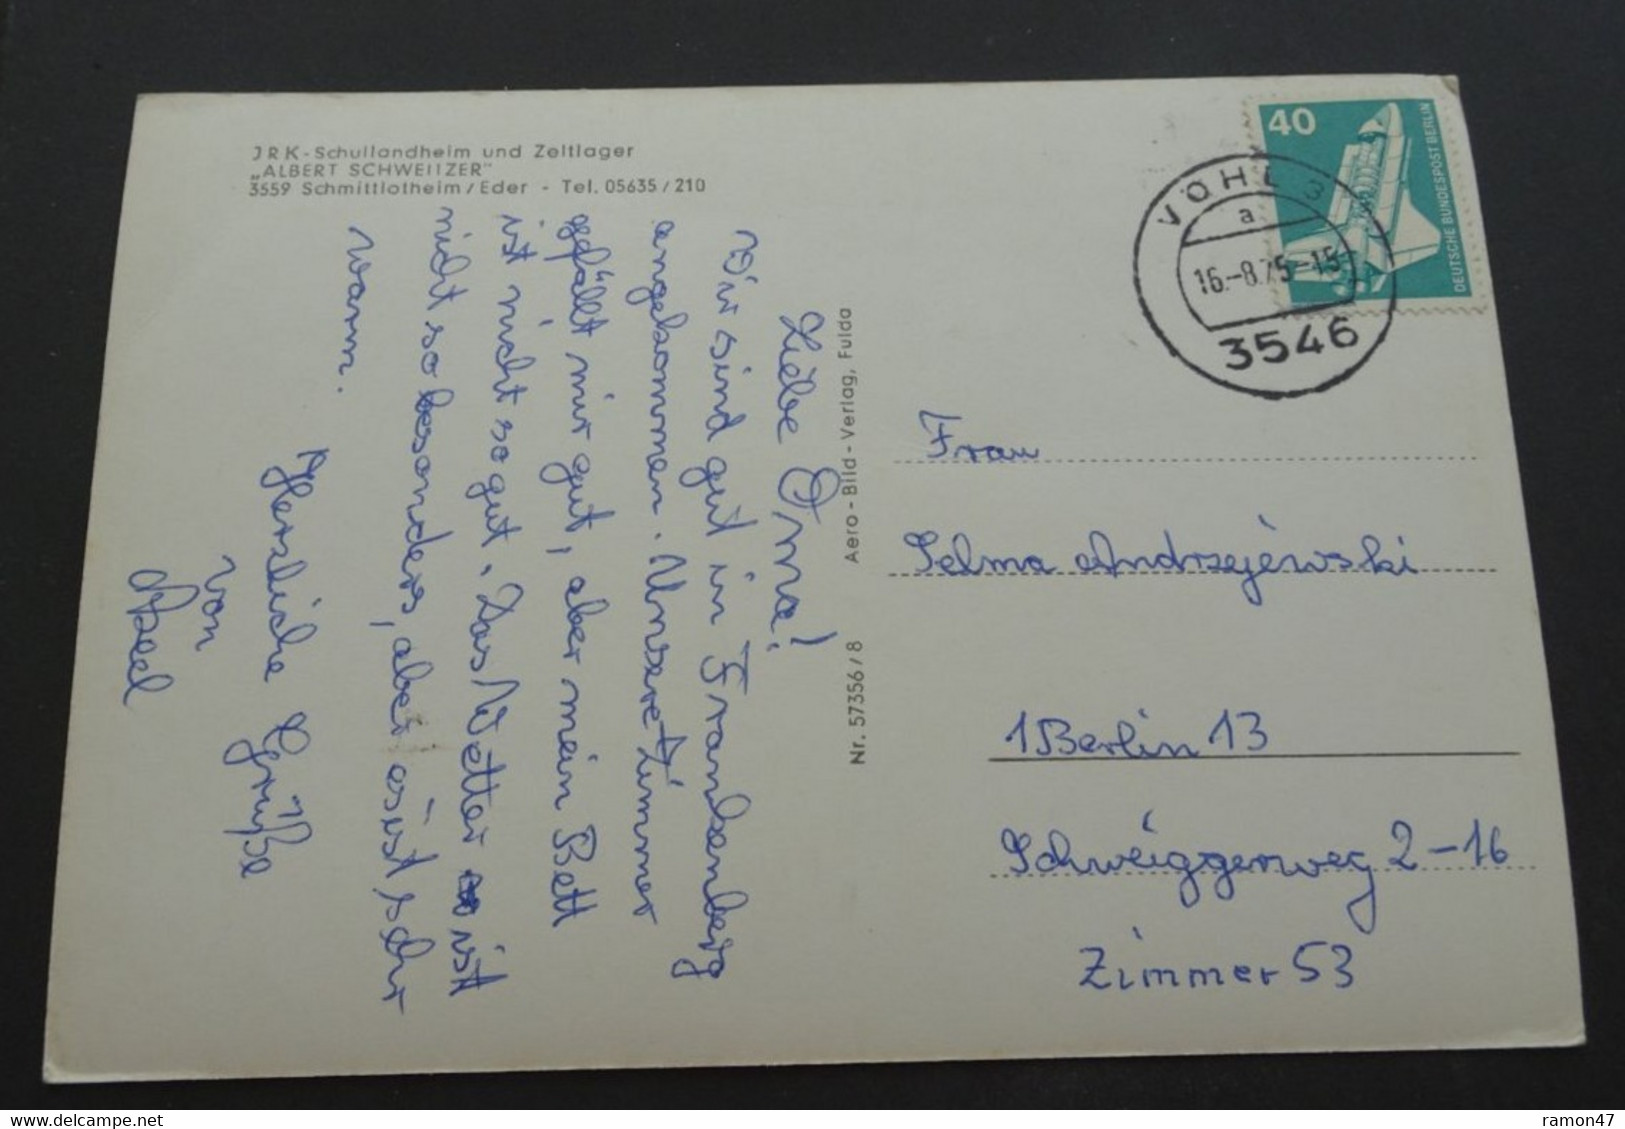 JRK-Schullandheim und Zeltlager
„ALBERT SCHWEITZER"
3559 Schmittlotheim/Eder - Tel. 05635/210
Liebe Oma!
Wir sind gut in Frankenberg
angekommen. Unsere Zimmer
gefällt mir gut, aber mein Bett
ist nicht so gut. Das Wetter ist
nicht so besonders, aber es ist sehr
warm.
Herzliche Grüße
von
Axel
Nr. 57356/8 Aero-Bild-Verlag, Fulda
40
DEUTSCHE BUNDESPOST BERLIN
VÖHL 3
a
16.-8.75-15
3546
Frau
Selma Andrzejewski
1 Berlin 13
Schweiggerweg 2-16
Zimmer 53
ramon47